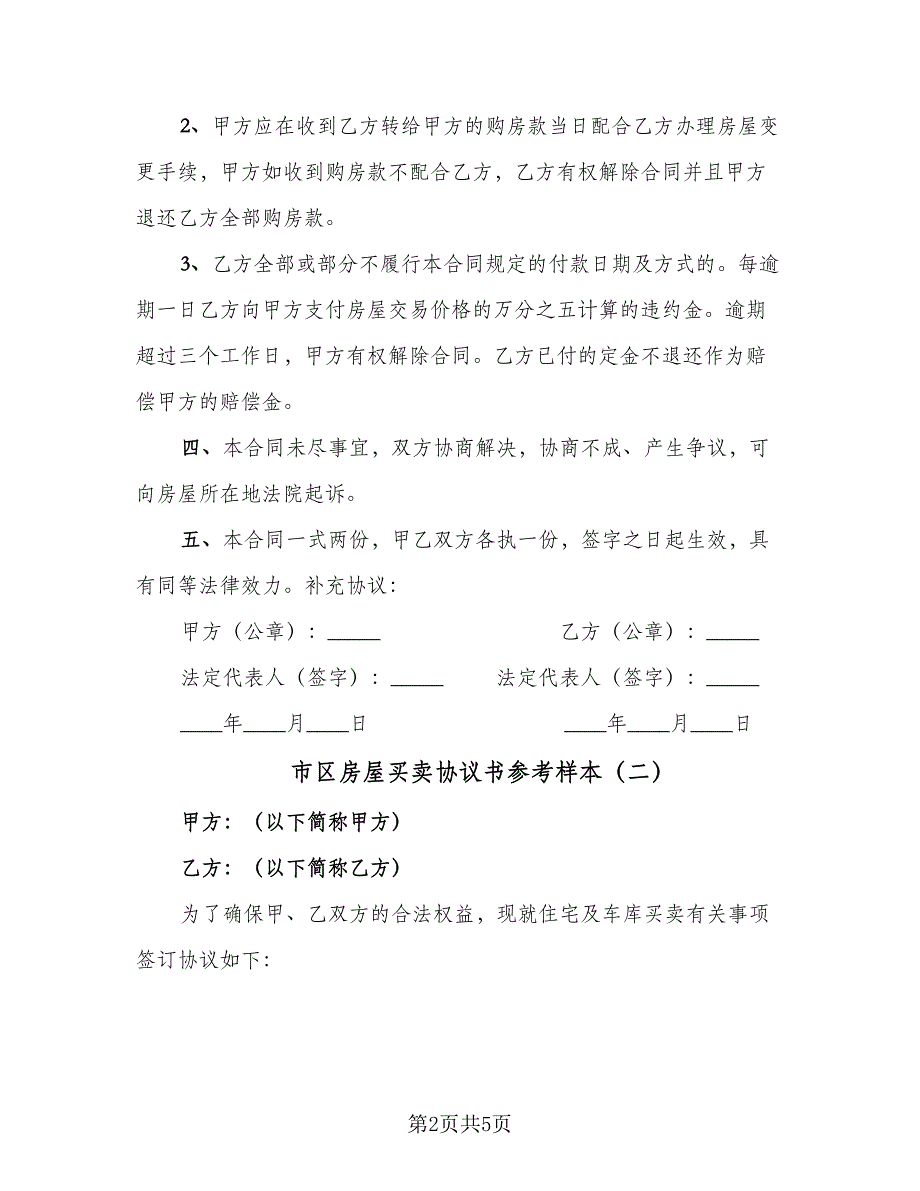 2、甲方应在收到乙方转给甲方的购房款当日配合乙方办理房屋变
更手续，甲方如收到购房款不配合乙方，乙方有权解除合同并且甲方
退还乙方全部购房款。
3、乙方全部或部分不履行本合同规定的付款日期及方式的。每逾
期一日乙方向甲方支付房屋交易价格的万分之五计算的违约金。逾期
超过三个工作日，甲方有权解除合同。乙方已付的定金不退还作为赔
偿甲方的赔偿金。
四、本合同未尽事宜，双方协商解决，协商不成、产生争议，可
向房屋所在地法院起诉。
五、本合同一式两份，甲乙双方各执一份，签字之日起生效，具
有同等法律效力。补充协议：
甲方（公章）：_____ 乙方（公章）：_____
法定代表人（签字）：_____ 法定代表人（签字）：_____
____年____月____日 ____年____月____日
市区房屋买卖协议书参考样本（二）
甲方：（以下简称甲方）
乙方：（以下简称乙方）
为了确保甲、乙双方的合法权益，现就住宅及车库买卖有关事项
签订协议如下：
第2页共5页